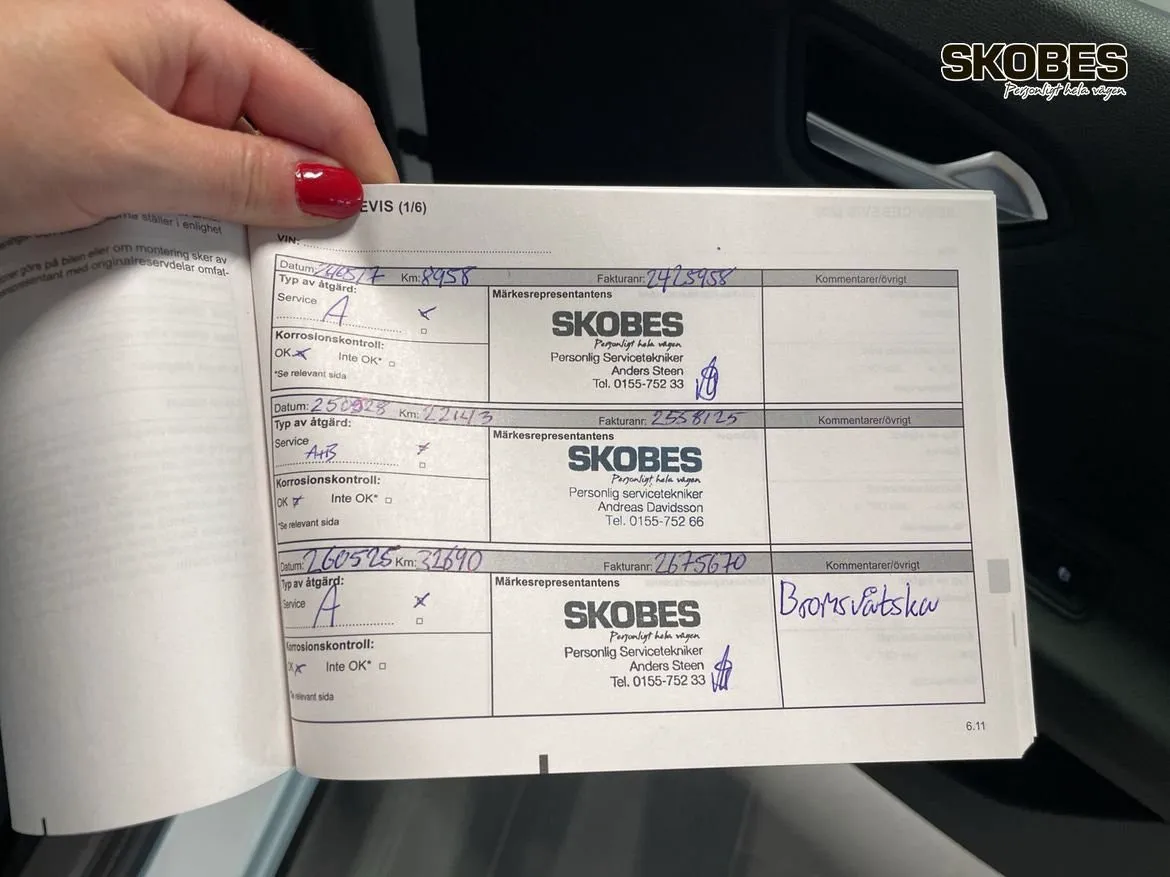 SKOBES
Personligt hela vägen
ställer i enlighet
görs på bilen eller om montering sker av
med originalreservdelar omfat-
EVIS (1/6)
VIN:
Datum: Km: 8958 Fakturanr: 2425958 Kommentarer/övrigt
Typ av åtgärd: Märkesrepresentantens
Service
A
SKOBES
Personligt hela vägen
Korrosionskontroll: Personlig Servicetekniker
OK Inte OK* Anders Steen
*Se relevant sida Tel. 0155-752 33
Datum: 250928 Km: 22143 Fakturanr: 2558125 Kommentarer/övrigt
Typ av åtgärd: Märkesrepresentantens
Service
A+B
SKOBES
Personligt hela vägen
Korrosionskontroll: Personlig servicetekniker
OK Inte OK* Andreas Davidsson
*Se relevant sida Tel. 0155-752 66
Datum: 260525 Km: 32690 Fakturanr: 2675670 Kommentarer/övrigt
Typ av åtgärd: Märkesrepresentantens
Service
A
SKOBES
Personligt hela vägen
Bromsvätska
Korrosionskontroll: Personlig Servicetekniker
OK Inte OK* Anders Steen
*Se relevant sida Tel. 0155-752 33
6.11